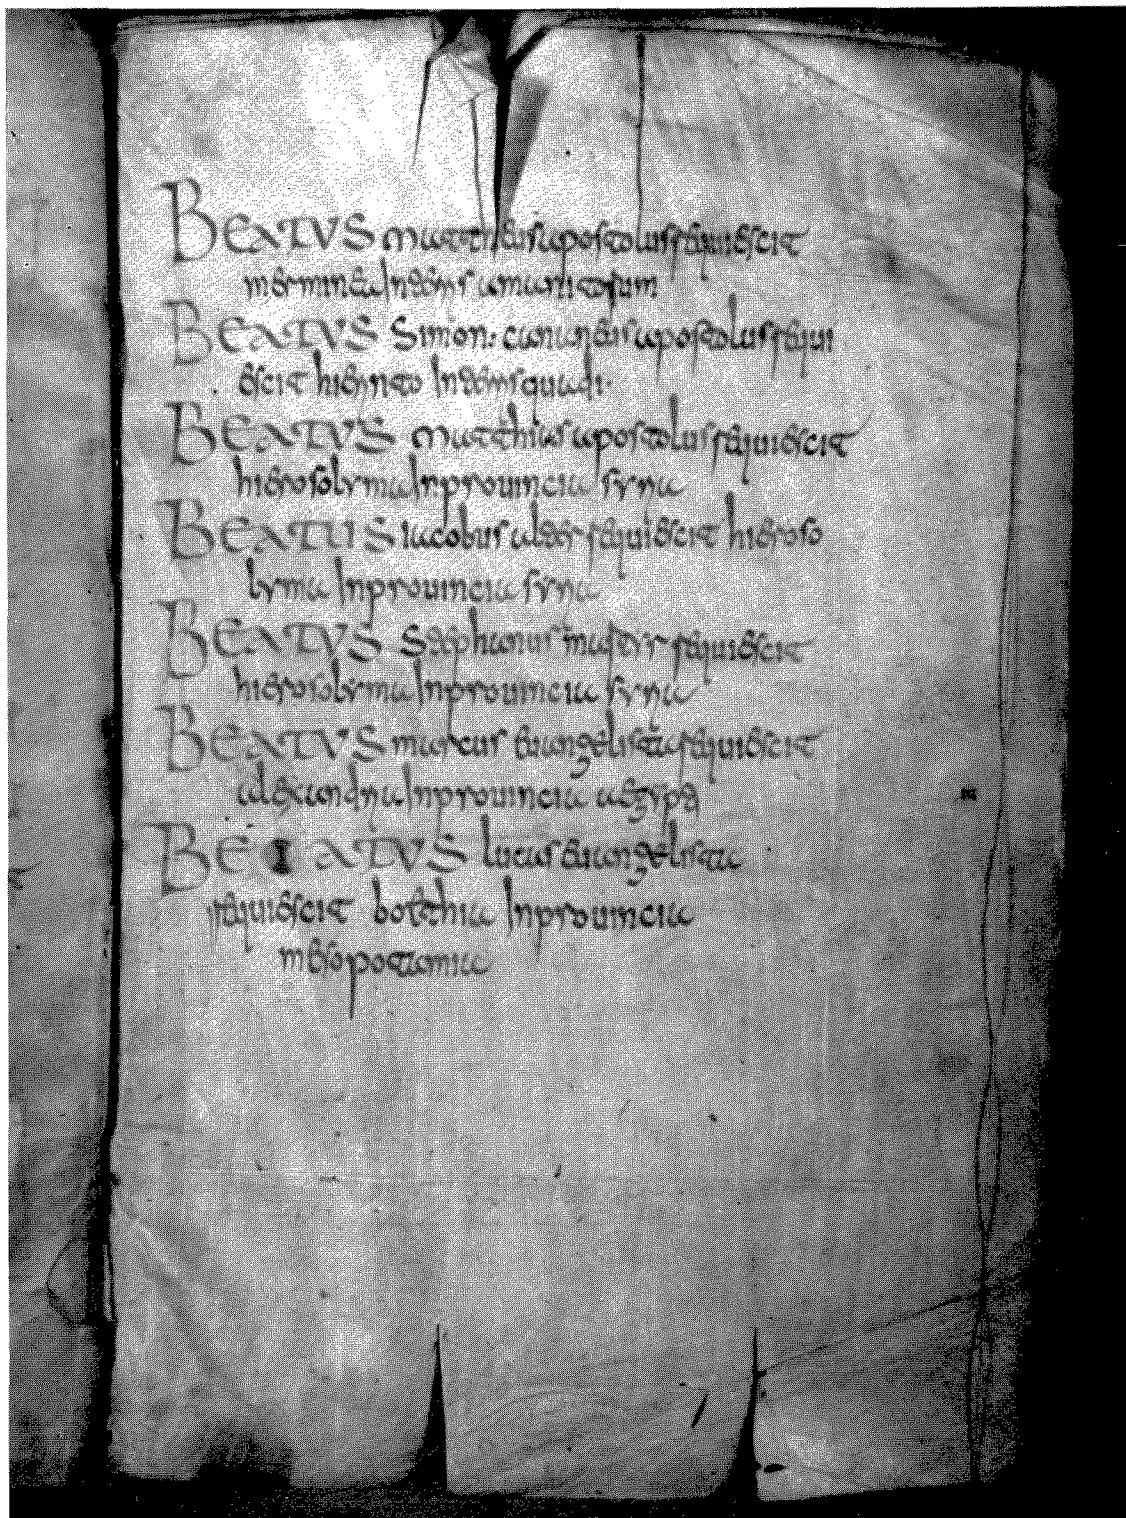 BEATVS mattheus apostolus requiescit
BEATVS Simon: cananeus apostolus requi
escit
BEATVS matthias apostolus requiescit
hierosolyma In prouincia syria
BEATUS iacobus alter requiescit hieroso
lyma In prouincia syria
BEATVS Stephanus martyr requiescit
hierosolyma In prouincia syria
BEATVS marcus euangelista requiescit
alexandria In prouincia aegypti
BEATVS lucas euangelista
requiescit botthia In prouincia
mesopotamia